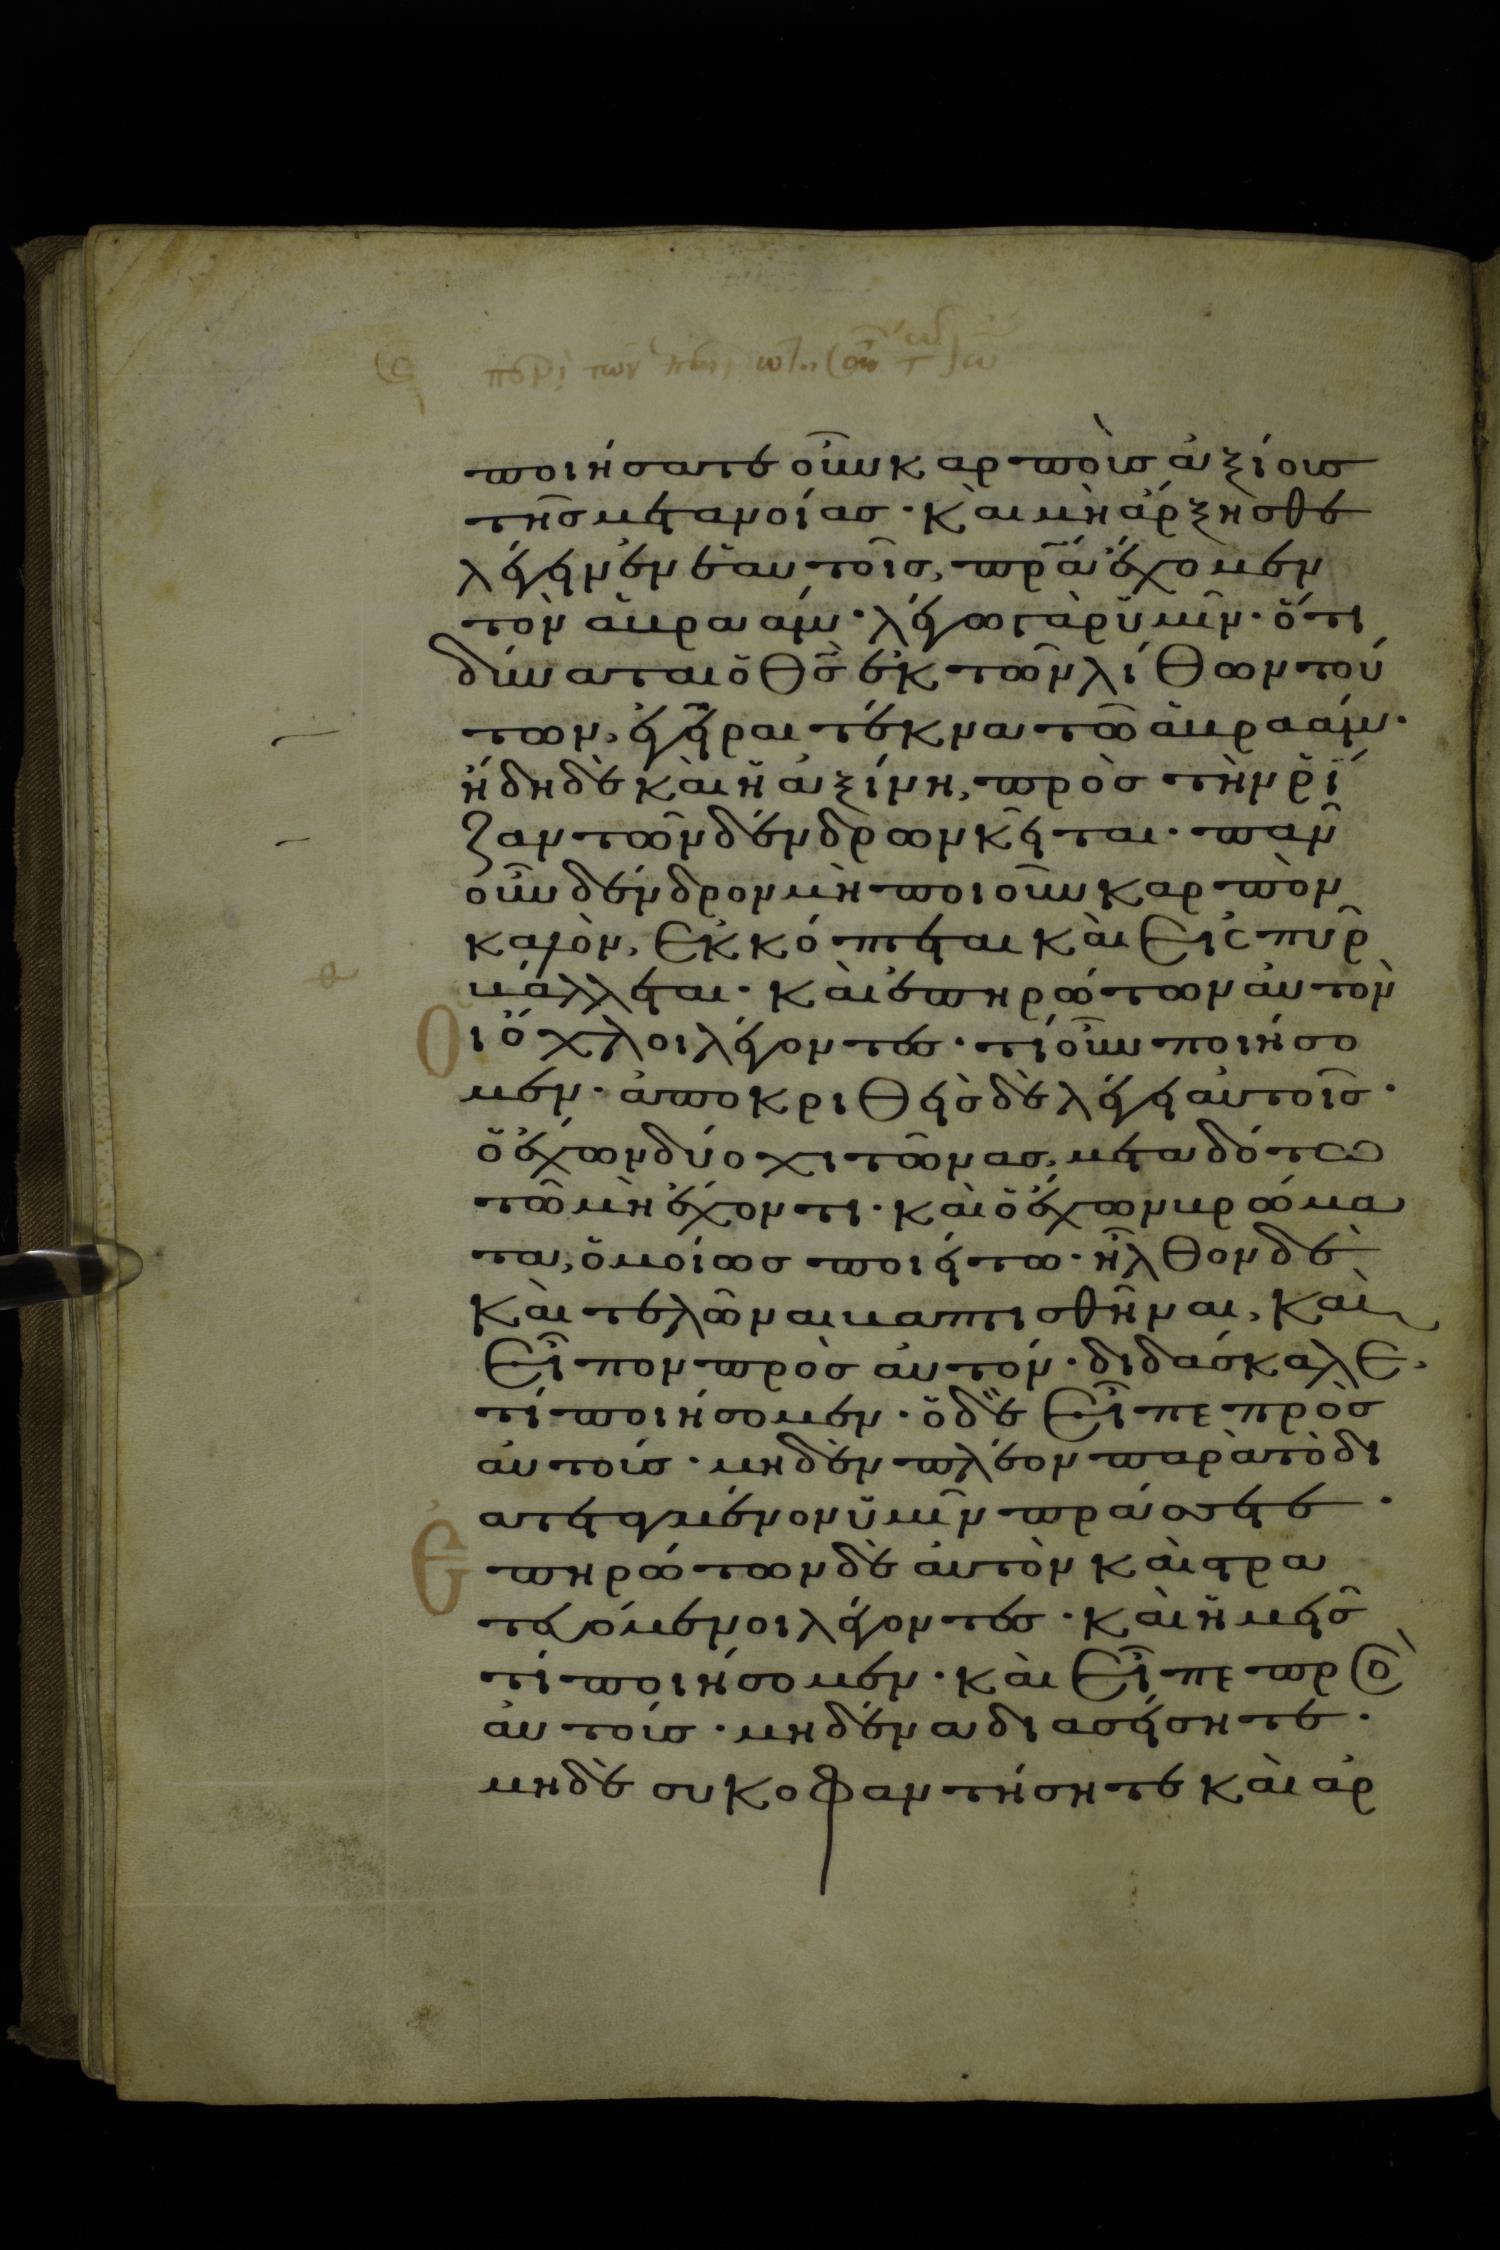 ποιήσατε οὖν καρποὺς ἀξίους
τῆς μετανοίας· καὶ μὴ ἄρξησθε
λέγειν ἐν ἑαυτοῖς, πρ̅α ἔχομεν
τὸν ἀβραάμ· λέγω γὰρ ὑμῖν· ὅτι
δύναται ὁ θ̅ς ἐκ τῶν λίθων τού
των, ἐγεῖραι τέκνα τῶ ἀβραάμ·
ἤδη δὲ καὶ ἡ ἀξίνη, πρὸς τὴν ῥί
ζαν τῶν δένδρων κεῖται· πᾶν
οὖν δένδρον μὴ ποιοῦν καρπὸν
καλὸν, ἐκκόπτεται καὶ εἰς πῦρ
βάλλεται· καὶ ἐπηρώτων αὐτὸν
Οἱ ὄχλοι λέγοντες· τί οὖν ποιήσο
μεν· ἀποκριθεὶς δὲ λέγει αὐτοῖς·
ὁ ἔχων δύο χιτῶνας, μεταδότω
τῶ μὴ ἔχοντι· καὶ ὁ ἔχων βρώμα
τα, ὁμοίως ποιείτω· ἦλθον δὲ
καὶ τελῶναι βαπτισθῆναι, καὶ
εἶπον πρὸς αὐτόν· διδάσκαλε,
τί ποιήσομεν· ὁ δὲ εἶπε πρὸς
αὐτούς· μηδὲν πλέον παρὰ τὸ δι
ατεταγμένον ὑμῖν πράσσετε·
Ἐπηρώτων δὲ αὐτὸν καὶ στρα
τευόμενοι λέγοντες· καὶ ἡμεῖς
τί ποιήσομεν· καὶ εἶπε πρὸς
αὐτούς· μηδένα διασείσητε·
μηδὲ συκοφαντήσητε καὶ ἀρ